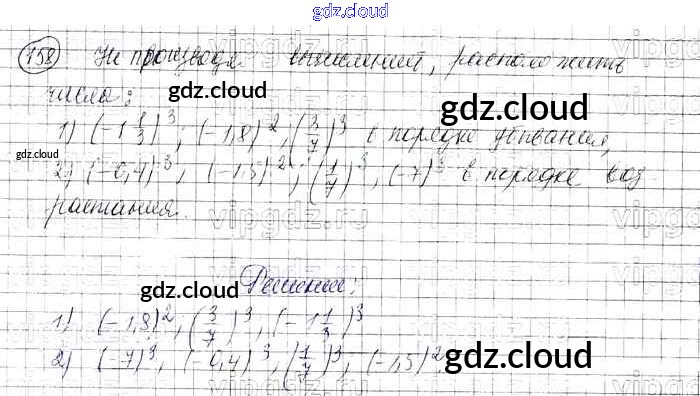 gdz.cloud
158 Не производя вычислений, расположить
числа:
1) (-1 1/3)^3; (-1,8)^2, (3/7)^3 в порядке убывания,
2) (-0,4)^3; (-1,5)^2; (1/7)^3, (-7)^3 в порядке воз
растания.
Решение:
1) (-1,8)^2, (3/7)^3, (-1 1/3)^3
2) (-7)^3, (-0,4)^3, (1/7)^3, (-1,5)^2
gdz.cloud
gdz.cloud
gdz.cloud
gdz.cloud
gdz.cloud
vipgdz.ru
vipgdz.ru
vipgdz.ru